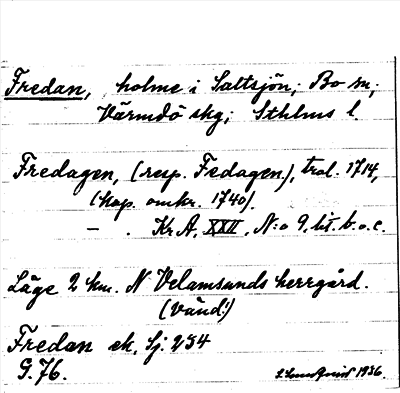 Fredan, holme i Saltsjön; Bo sn;
Värmdö skg; Sthlms l.
Fredagen, (resp. Fedagen), tral. 1714,
(kop. omkr. 1740).
— . Kr.A, XXII, N:o 9, lit. b.o.c.
Läge 2 km. N Velamsunds herrgård.
(vänd!)
Fredan ek. Sj. 234
G. 76.
1936.